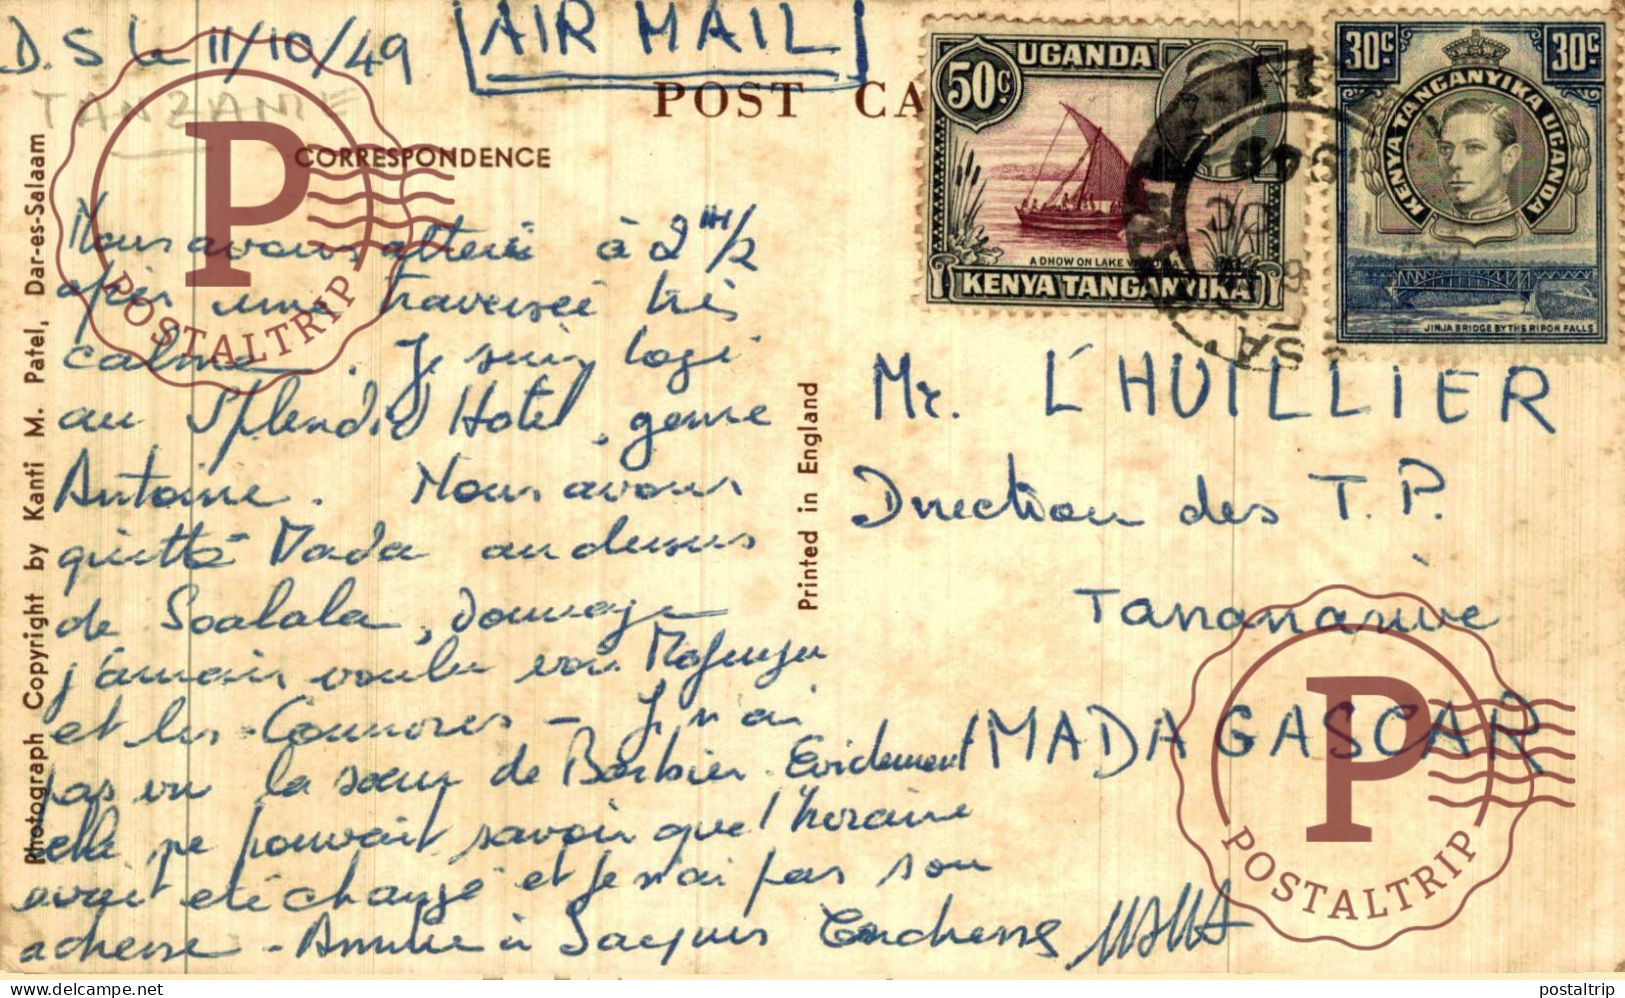 D.S le 11/10/49
AIR MAIL
TANZANIE
POST CA
CORRESPONDENCE
Nous avons atterri à 2 H 1/2
après une traversée très
calme. Je suis logé
au Splendid Hotel, genre
Antoine. Nous avons
quitté Mada au dessus
de Soalala, dommage
j'amais voulu voir Majunga
et les Comores - Je n'ai
pas vu la sœur de Barbier. Evidement
elle ne pouvait savoir que l'horaire
avait été changé et je n'ai pas son
adresse - Amitié à Jacques
Photograph Copyright by Kanti M. Patel, Dar-es-Salaam
Printed in England
UGANDA
50c.
A DHOW ON LAKE VICTORIA
KENYA TANGANYIKA
30c
30c
KENYA TANGANYIKA UGANDA
JINJA BRIDGE BY THE RIPON FALLS
Mr. L'HUILLIER
Direction des T.P.
Tananarive
MADAGASCAR
P
POSTALTRIP
P
POSTALTRIP
delcampe.net
postaltrip